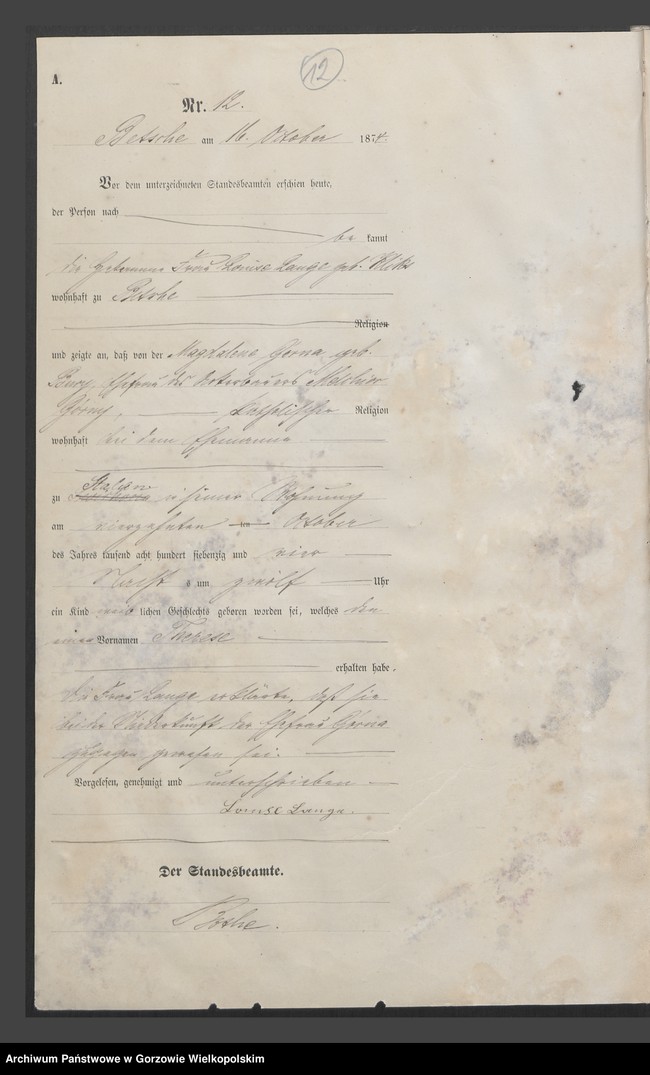 A.
12
Nr. 12.
Betsche am 16. October 1874.
Vor dem unterzeichneten Standesbeamten erschien heute,
der Person nach
be kannt
die Hebamme Frau Louise Lange geb.
wohnhaft zu Betsche
Religion
und zeigte an, daß von der Magdalena Gorna geb.
Ehefrau des Ackerbauers Melchior
Górny, katholischer Religion
wohnhaft bei dem Ehemanne
zu in seiner Wohnung
am vierzehnten ten October
des Jahres tausend acht hundert siebenzig und vier
Nachts um zwölf Uhr
ein Kind weib lichen Geschlechts geboren worden sei, welches den
einen Vornamen Therese
erhalten habe.
Die Frau Lange erklärte, daß sie
bei der Niederkunft der Ehefrau Górna
zugegen gewesen sei.
Vorgelesen, genehmigt und unterschrieben
Louise Lange.
Der Standesbeamte.
Bothe.
Archiwum Państwowe w Gorzowie Wielkopolskim